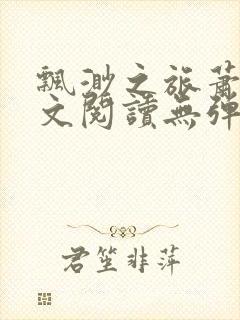 飄渺之旅蕭
文閱讀無彈
君笙非萍